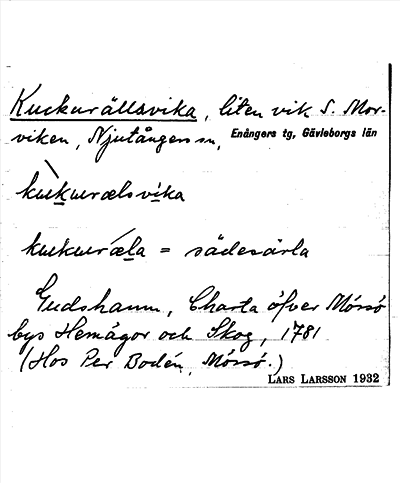 Kuckurällsvika, liten vik S. Mor-
viken, Njutångers sn, Enångers tg, Gävleborgs län
kukkurælsvika
kukkuræla = sädesärla
Gudshamn, Charta öfver Mössö
bys Hemägor och Skog, 1781
(Hos Per Bodén, Mössö.)
LARS LARSSON 1932